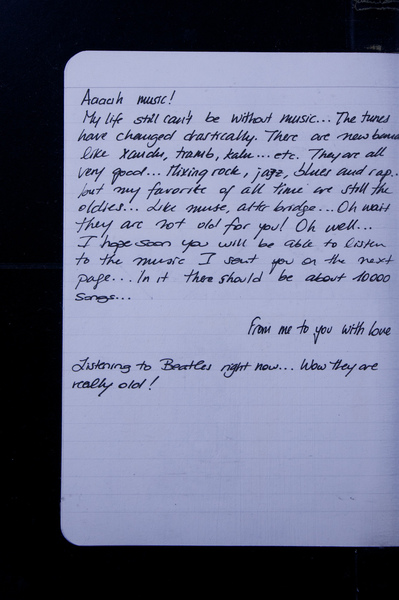 Aaaah music!
My life still can't be without music... The tunes
have changed drastically. There are new
like Xandu, tramb, kalu... etc. They are all
very good... Mixing rock, jazz, blues and rap..
but my favorite of all time are still the
oldies... Like muse, alter bridge... Oh wait
they are not old for you! Oh well...
I hope soon you will be able to listen
to the music I sent you on the next
page... In it there should be about 10000
songs...
From me to you with love
Listening to Beatles right now... Wow they are
really old!